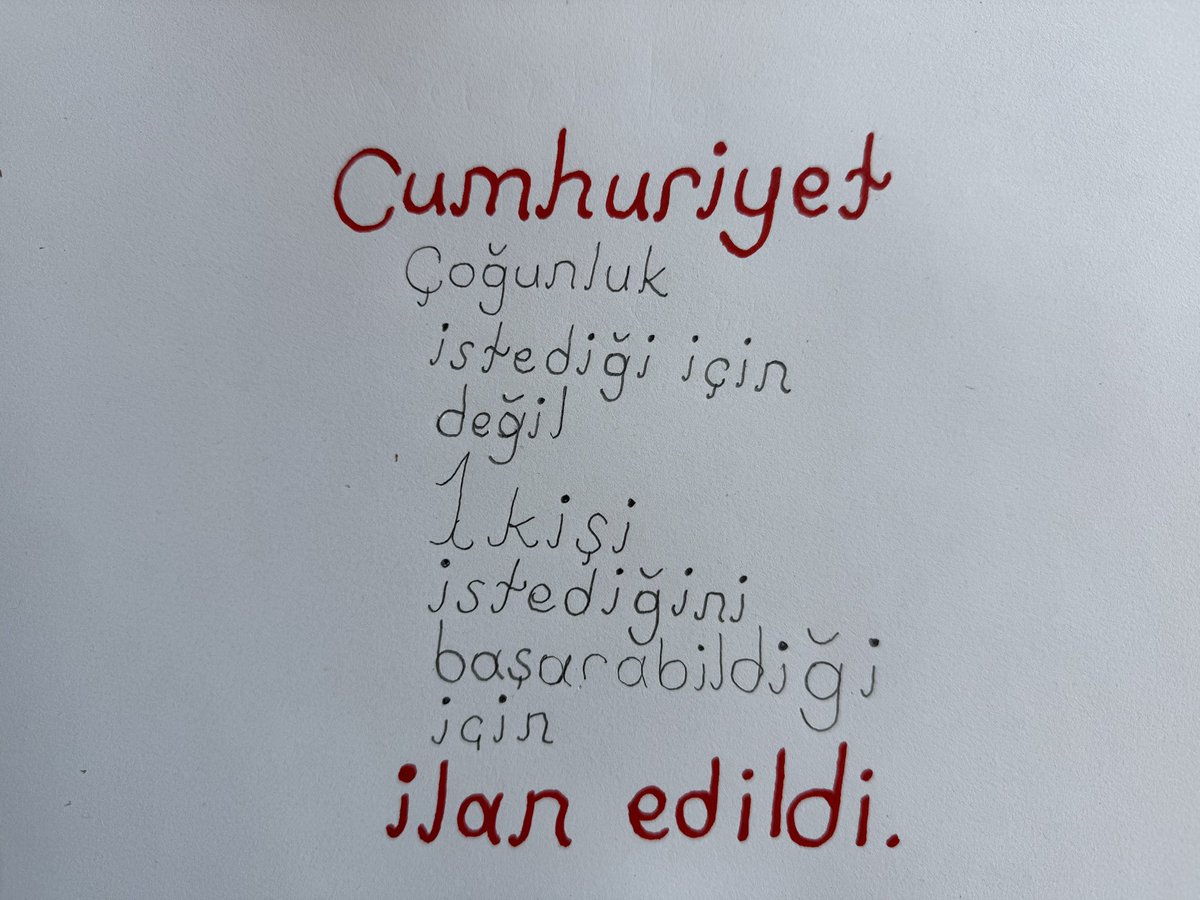 Cumhuriyet
Çoğunluk
istediği için
değil
1 kişi
istediğini
başarabildiği
için
ilan edildi.